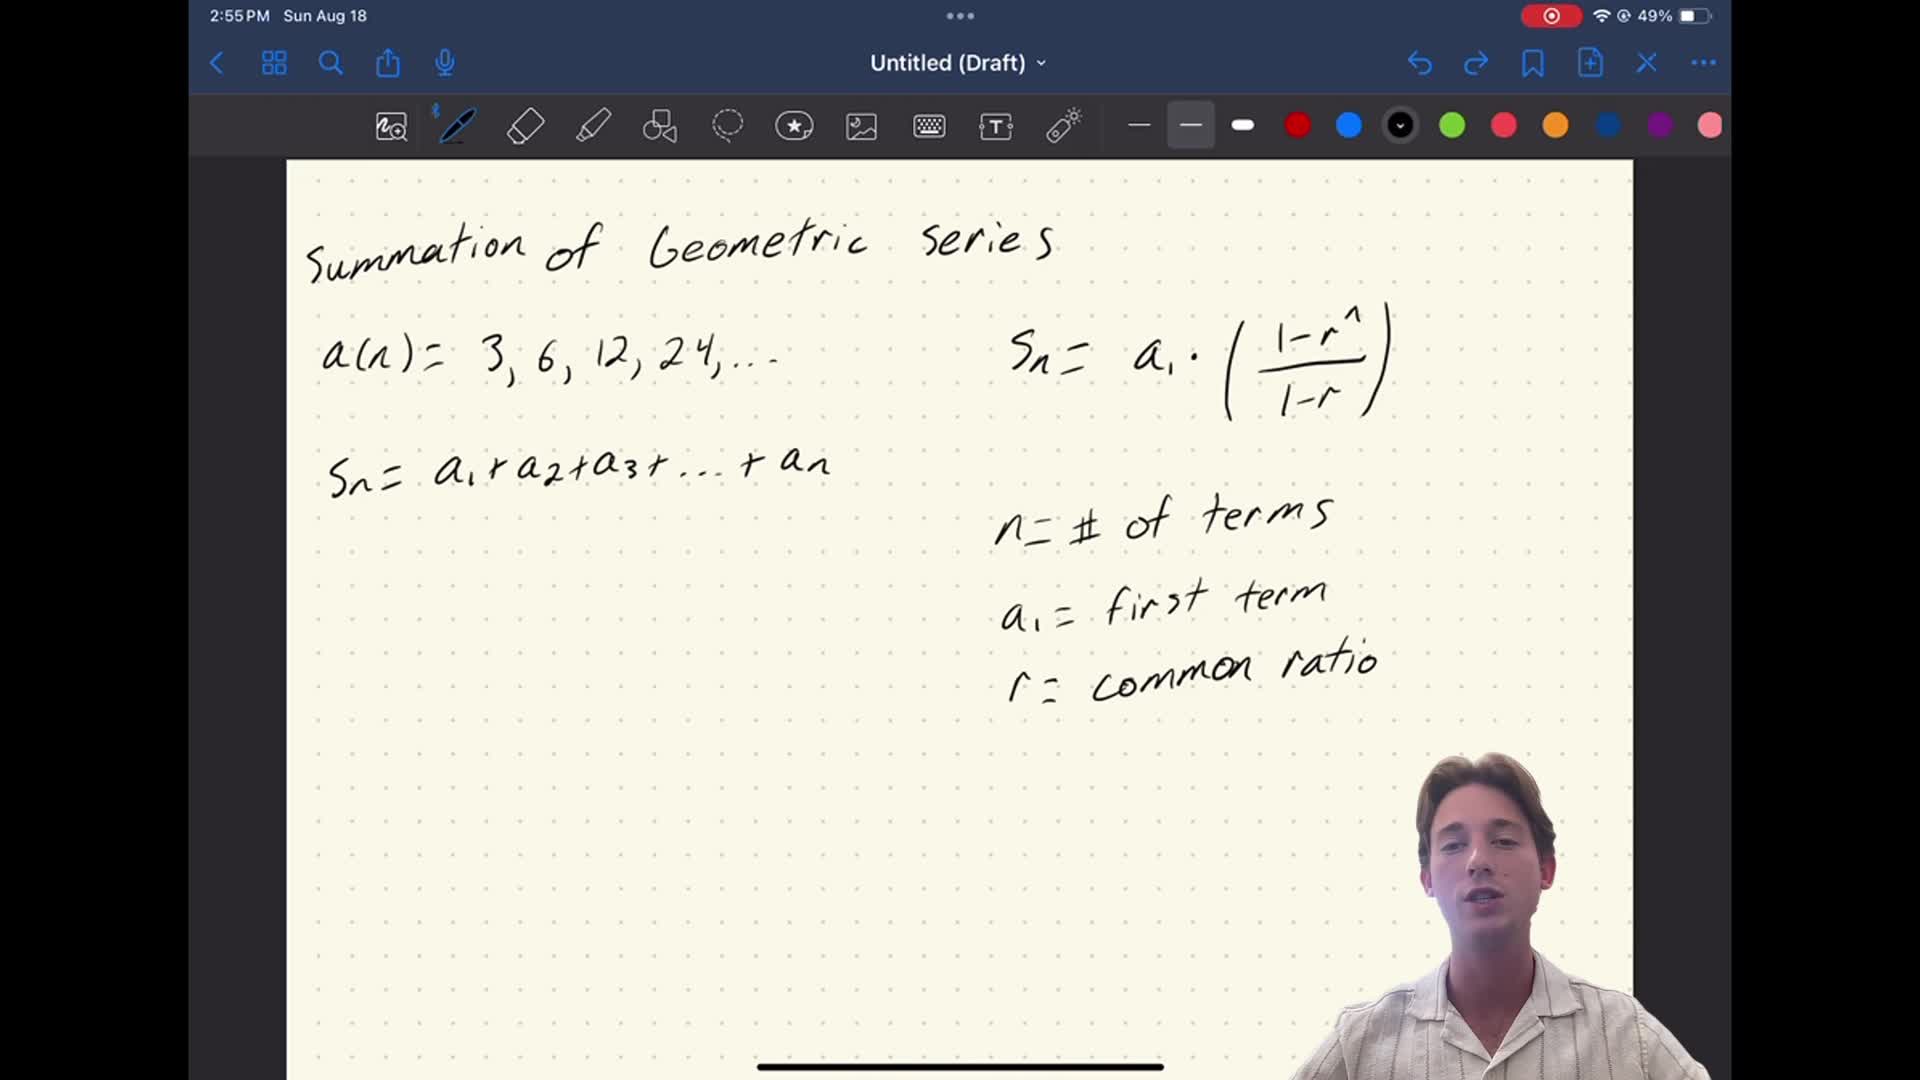 2:55 PM Sun Aug 18
49%
Untitled (Draft)
T
Summation of Geometric series
a(n)= 3, 6, 12, 24, ...
Sn= a₁+a₂+a₃+ ... + an
Sn= a₁ · ( 1-rⁿ / 1-r )
n= # of terms
a₁= first term
r= common ratio